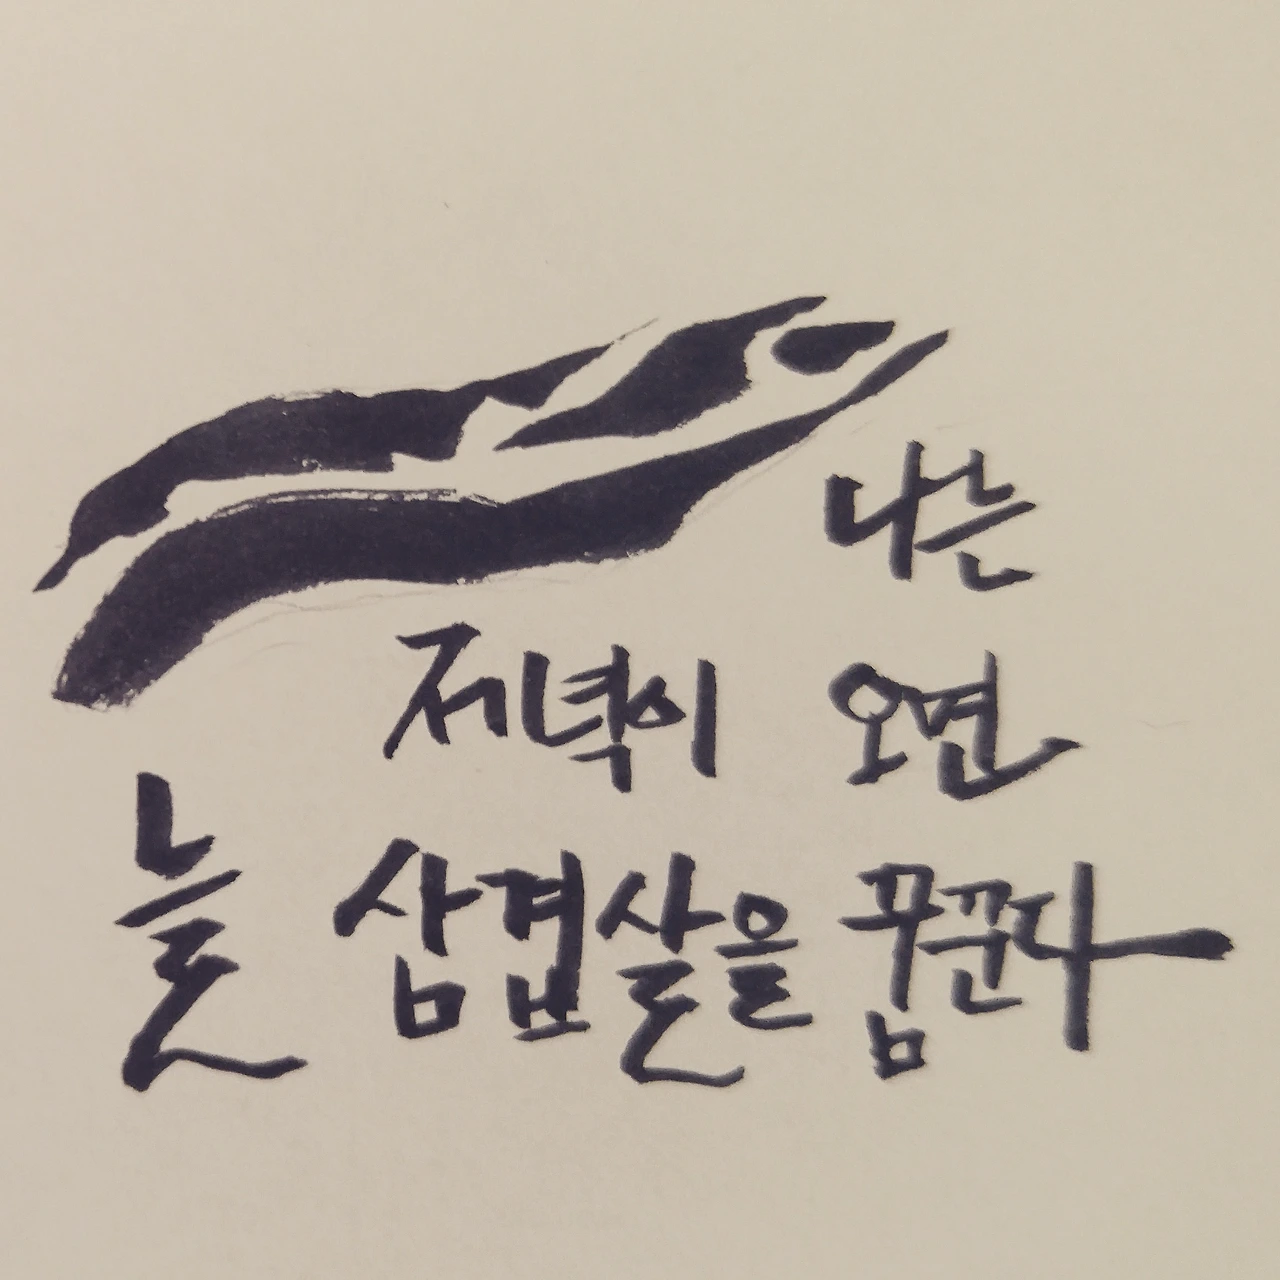 나는
저녁이 오면
늘 삼겹살을 꿈꾼다